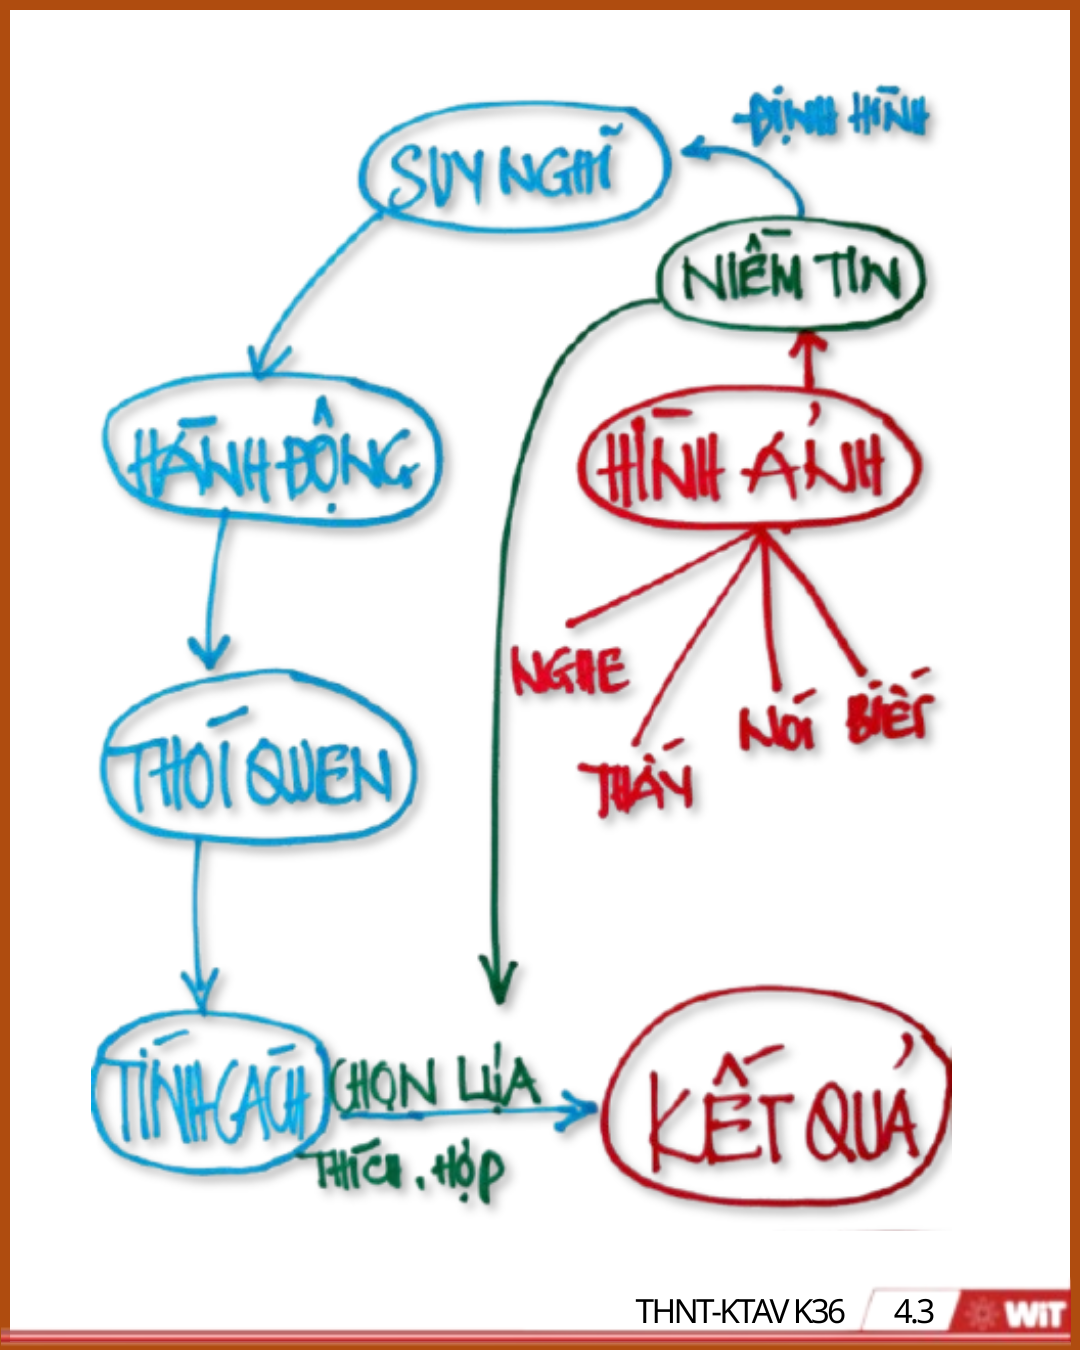 ĐỊNH HÌNH
SUY NGHĨ
NIỀM TIN
HÀNH ĐỘNG
HÌNH ẢNH
NGHE
THẤY
NÓI
BIẾT
THÓI QUEN
TÍNH CÁCH
CHỌN LỰA
THÍCH, HỢP
KẾT QUẢ
THNT-KTAV K36
4.3
WiT